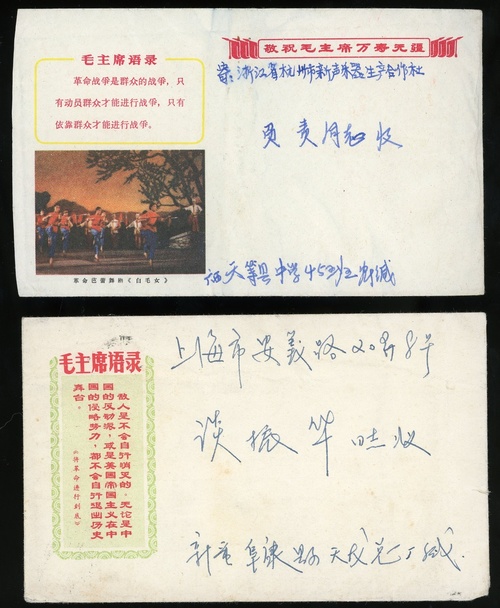 毛主席语录
革命战争是群众的战争，只
有动员群众才能进行战争，只有
依靠群众才能进行战争。
革命芭蕾舞剧《白毛女》
敬祝毛主席万寿无疆
浙江省杭州市新声乐器生产合作社
贵同志收
天等县中学45班缄
毛主席语录
敌人是不会自行消灭的。无论是中
国的反动派，或是美国帝国主义在中
国的侵略势力，都不会自行退出历史
舞台。
《将革命进行到底》
上海市安義路
谈振华同志收
新疆阜康县天